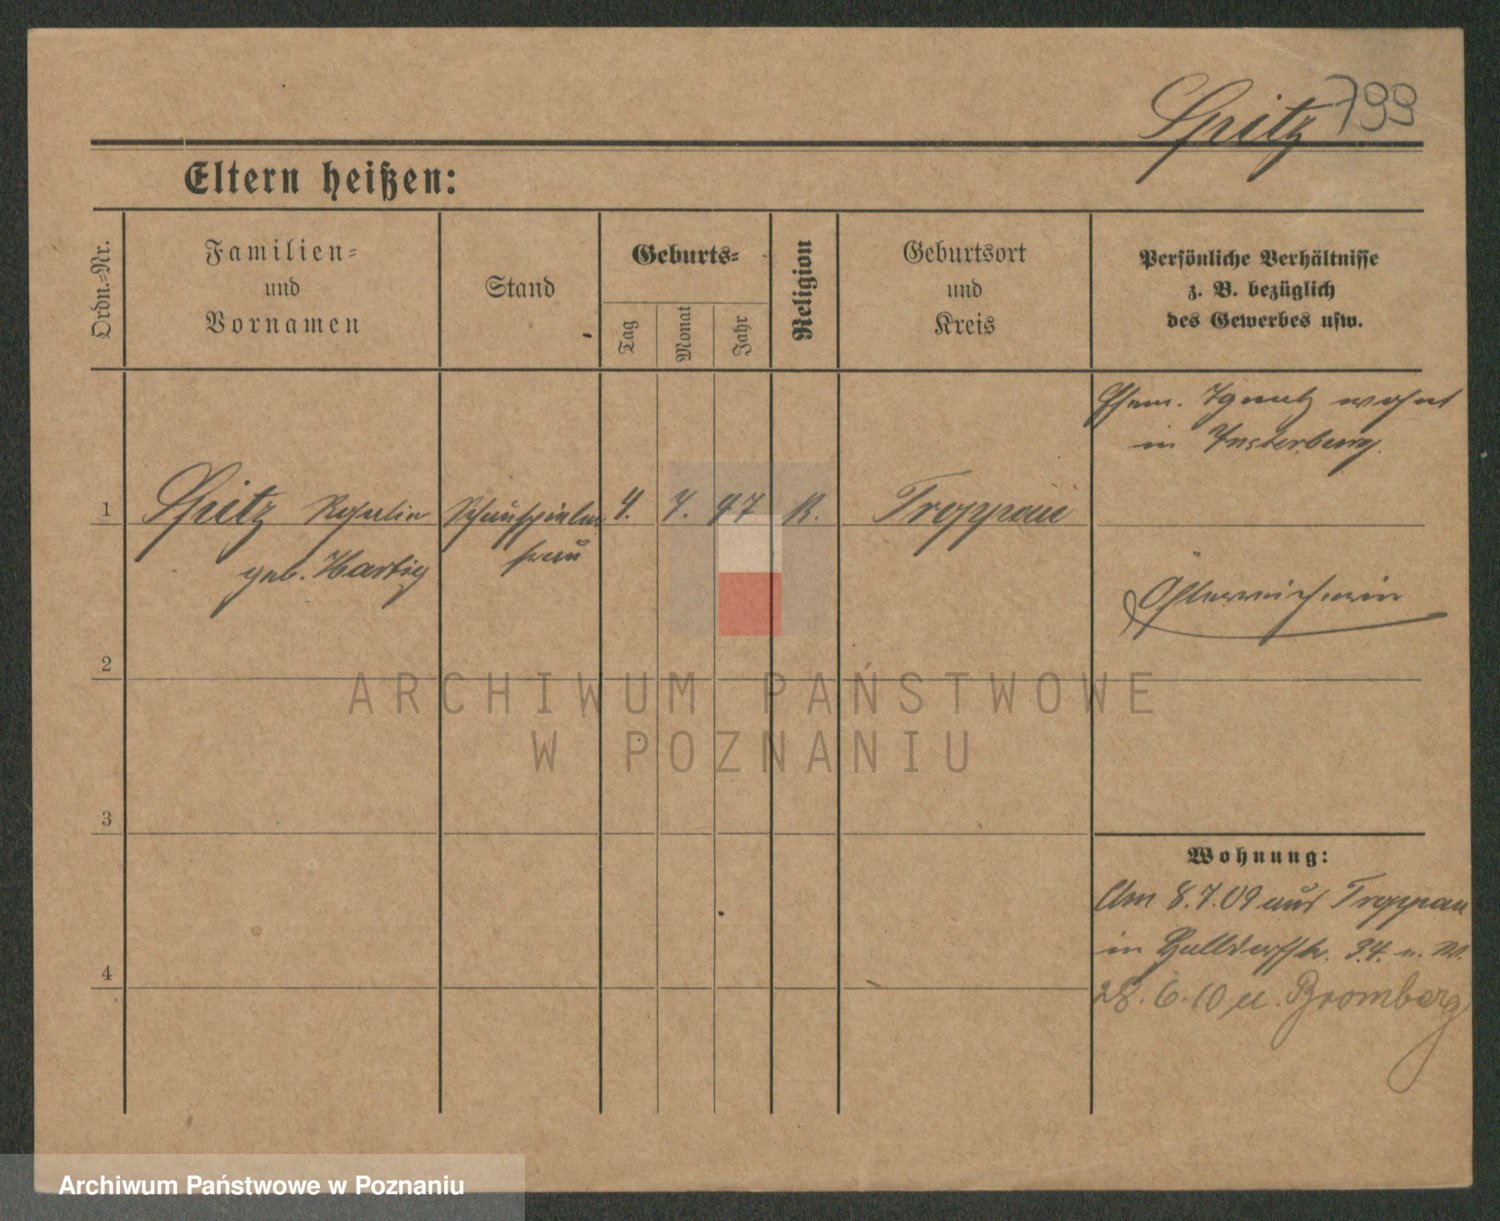 Spitz 799
Eltern heißen:
Ordn.-Nr.
Familien-
und
Vornamen
Stand
Geburts-
Tag
Monat
Jahr
Religion
Geburtsort
und
Kreis
Persönliche Verhältnisse
z. B. bezüglich
des Gewerbes usw.
Ehem. Ignatz wohnt
in Insterburg
1
Spitz Rosalie
geb. Hartig
Schauspieler
frau
4. 7. 47 K. Troppau
Österreicherin
2
ARCHIWUM PAŃSTWOWE
W POZNANIU
3
Wohnung:
Am 8.7.09 aus Troppau
in 34. n. W.
4
28.6.10 n. Bromberg
Archiwum Państwowe w Poznaniu